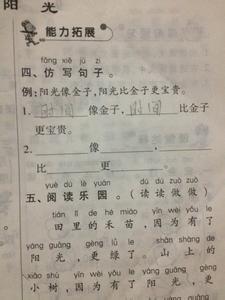 阳 光
能力拓展
fǎng xiě jù zi
四、仿写句子。
例:阳光像金子,阳光比金子更宝贵。
1. 时间 像金子, 时间 比金子
更宝贵。
2. 像 ,
比 更 。
yuè dú lè yuán dú dú zuò zuò
五、阅读乐园。(读读做做)
tián lǐ de hé miáo yīn wèi yǒu le
田里的禾苗,因为有了
yáng guāng gèng lǜ le shān shàng de
阳光,更绿了。山上的
xiǎo shù yīn wèi yǒu le yáng guāng gèng
小树,因为有了阳光,更